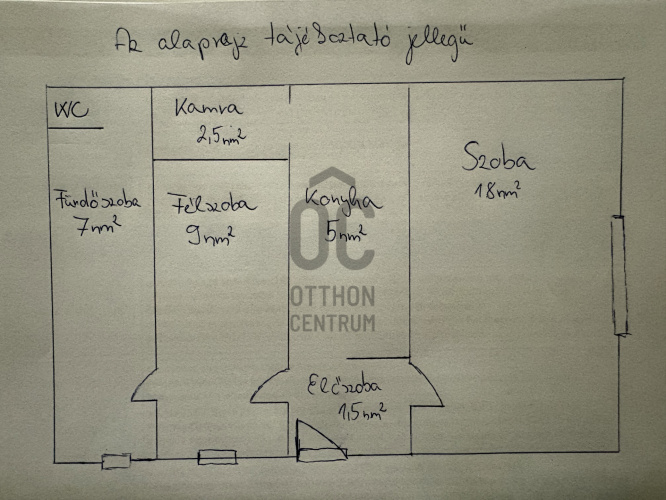 Az alaprajz tájékoztató jellegű
WC
Kamra
2,5nm²
Szoba
18nm²
Fürdőszoba
7nm²
Félszoba
9nm²
Konyha
5nm²
OC
OTTHON
CENTRUM
Előszoba
1,5nm²